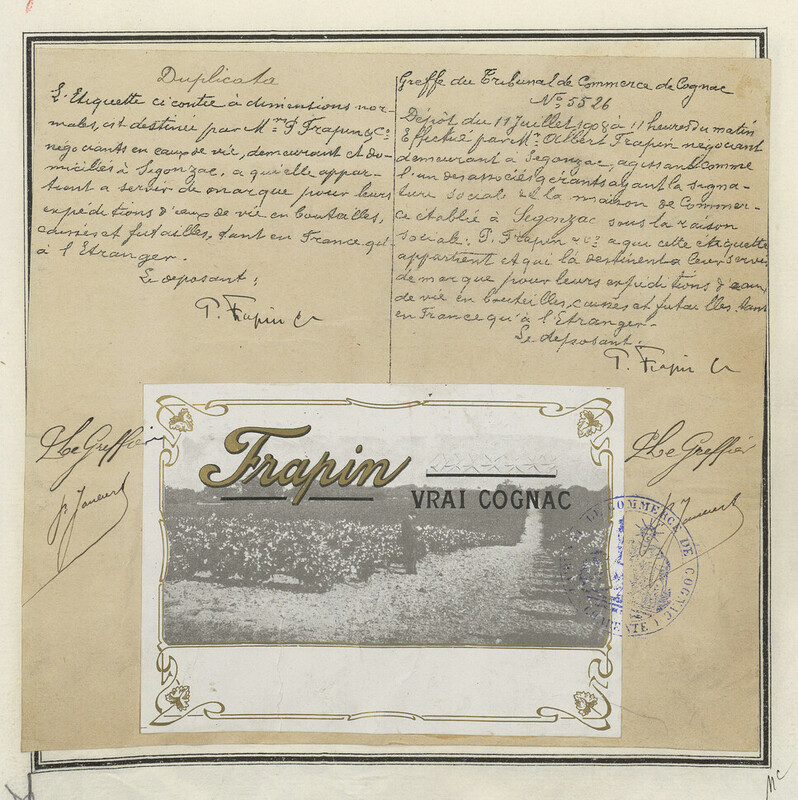 Duplicata
L'Etiquette ci contre à dimensions nor-
males, est destinée par Mrs P. Frapin & Ce
négociants en eaux de vie, demeurant et do-
miciliés à Segonzac, a qu'elle appar-
tient a servir de marque pour leurs
expéditions d'eaux de vie en bouteilles,
caisses et futailles, tant en France qu'
à l'Etranger.
Le deposant:
P. Frapin Ce
Greffe du Tribunal de Commerce de Cognac
No 5526
Dépôt du 11 Juillet 1908 à 11 heures du matin
Effectué par Mr Albert Frapin négociant
demeurant à Segonzac, agissant comme
l'un des associés gérants ayant la signa-
ture sociale de la maison de Commer-
ce établie à Segonzac sous la raison
sociale: P. Frapin & Ce a qui cette etiquette
appartient et qui la destinent a leur servir
de marque pour leurs expéditions d'eaux
de vie en bouteilles, caisses et futailles, tant
en France qu'à l'Etranger.
Le deposant:
P. Frapin Ce
Le Greffier
Le Greffier
Frapin
VRAI COGNAC
COMMERCE DE COGNAC
MC